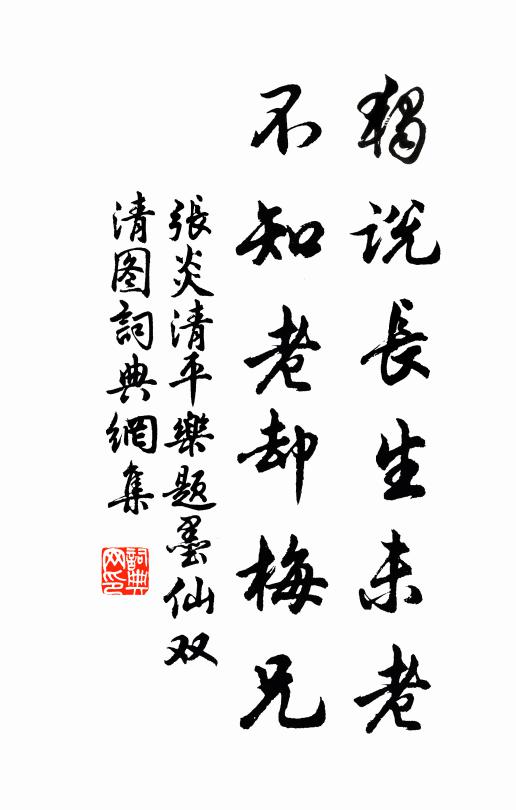 独說長生未老
不知老却梅兄
張炎清平樂題墨仙双
清图詞典網集
詞典网印